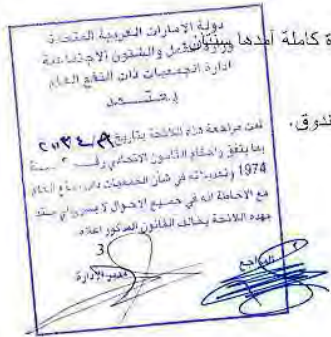 ة كاملة أمدها سنتان
دولة الامارات العربية المتحدة
وزارة العمل والشئون الاجتماعية
ادارة الجمعيات ذات النفع العام
يعتمد
ندوق.
تمت مراجعة هذه اللائحة بتاريخ
بما يتفق واحكام القانون الاتحادي رقم لسنة
1974 وتعديلاته في شأن الجمعيات ذات النفع العام
مع الاحاطة انه في جميع الاحوال لا يسري أي بند
بهذه اللائحة يخالف القانون المذكور اعلاه
3
المراجع
مدير الإدارة